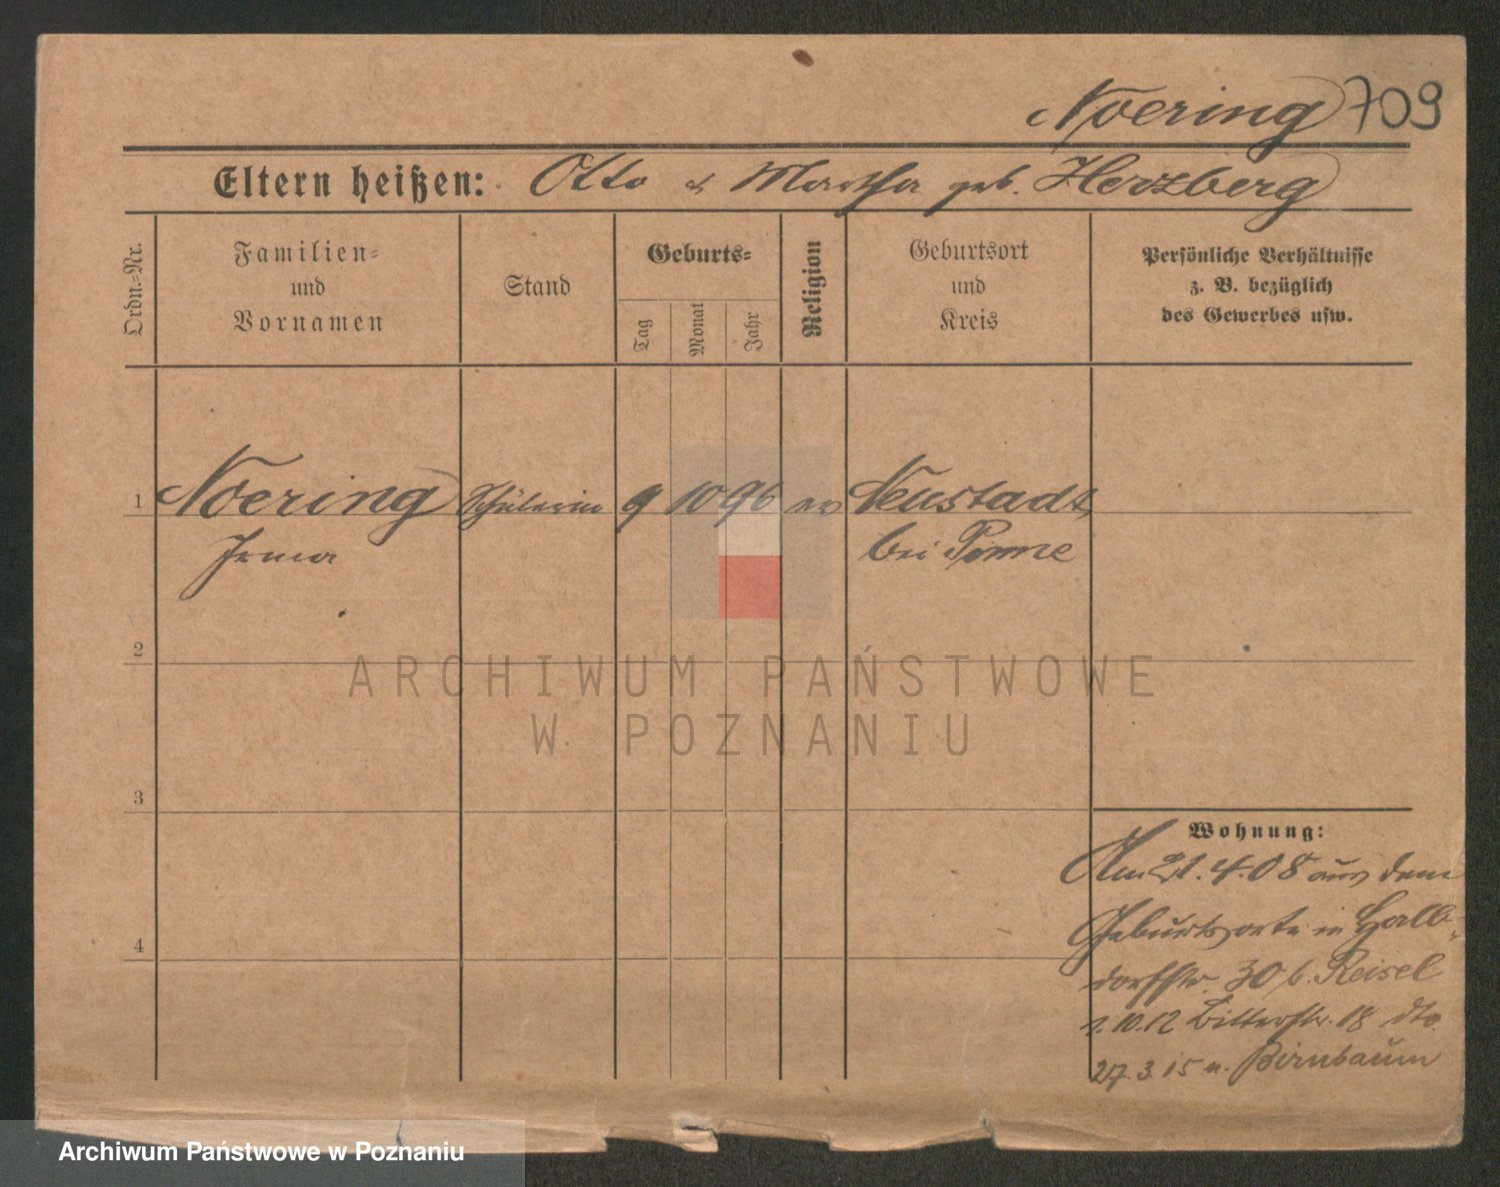 Noering 709
Eltern heißen: Otto & Martha geb. Herzberg
Ordn.-Nr.
Familien-
und
Vornamen
Stand
Geburts-
Tag
Monat
Jahr
Religion
Geburtsort
und
Kreis
Persönliche Verhältnisse
z. B. bezüglich
des Gewerbes usw.
1 Noering Schülerin 9 10 96 ev Neustadt
Irma bei Pinne
2
ARCHIWUM PAŃSTWOWE
W POZNANIU
3
Wohnung:
Am 21.4.08 aus dem
4 Geburtsorte in Halb-
dorfstr. 30 b. Reisel
1.10.12 Ritterstr. 18 dto
27.3.15 n. Birnbaum
Archiwum Państwowe w Poznaniu